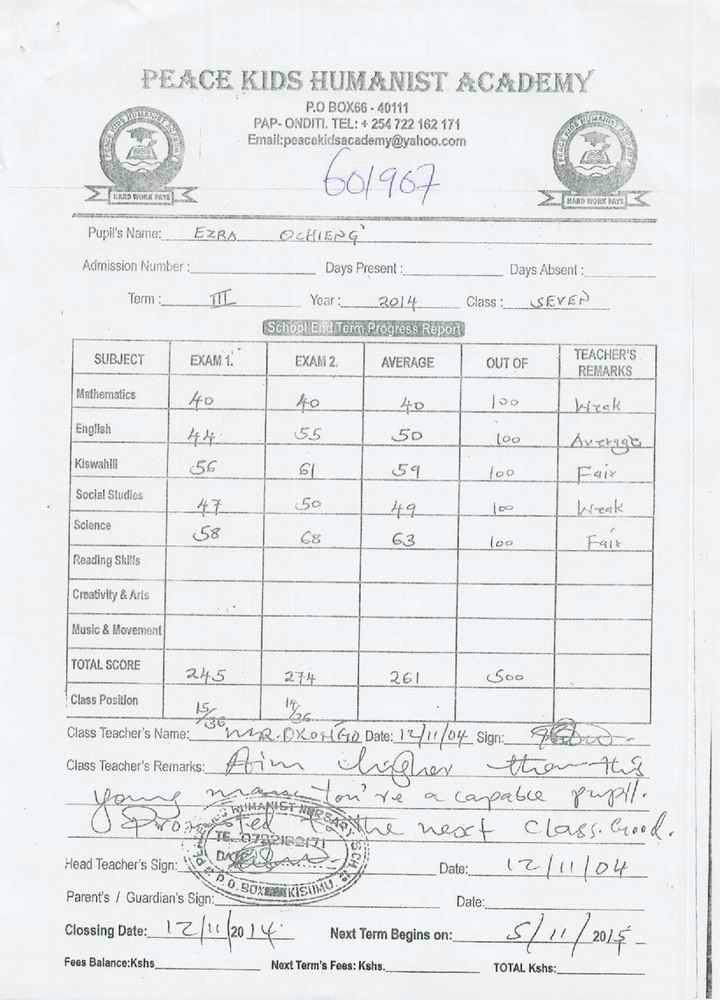 PEACE KIDS HUMANIST ACADEMY
P.O BOX66 - 40111
PAP- ONDITI. TEL: + 254 722 162 171
Email:peacekidsacademy@yahoo.com
HARD WORK PAYS
HARD WORK PAYS
601967
Pupil's Name: EZRA OCHIENG'
Admission Number : Days Present : Days Absent :
Term : III Year : 2014 Class : SEVEN
School End Term Progress Report
SUBJECT EXAM 1. EXAM 2. AVERAGE OUT OF TEACHER'S REMARKS
Mathematics 40 40 40 100 Weak
English 44 55 50 100 Average
Kiswahili 56 61 59 100 Fair
Social Studies 47 50 49 100 Weak
Science 58 68 63 100 Fair
Reading Skills
Creativity & Arts
Music & Movement
TOTAL SCORE 245 274 261 500
Class Position 15/36 14/36
Class Teacher's Name: MR. Date: 12/11/04 Sign:
Class Teacher's Remarks: Aim higher than this
young man. You're a capable pupil.
Promoted to the next class. Good.
Head Teacher's Sign: Date: 12/11/04
Parent's / Guardian's Sign: Date:
Clossing Date: 12/11/2014 Next Term Begins on: 5/11/2015
Fees Balance:Kshs Next Term's Fees: Kshs. TOTAL Kshs: